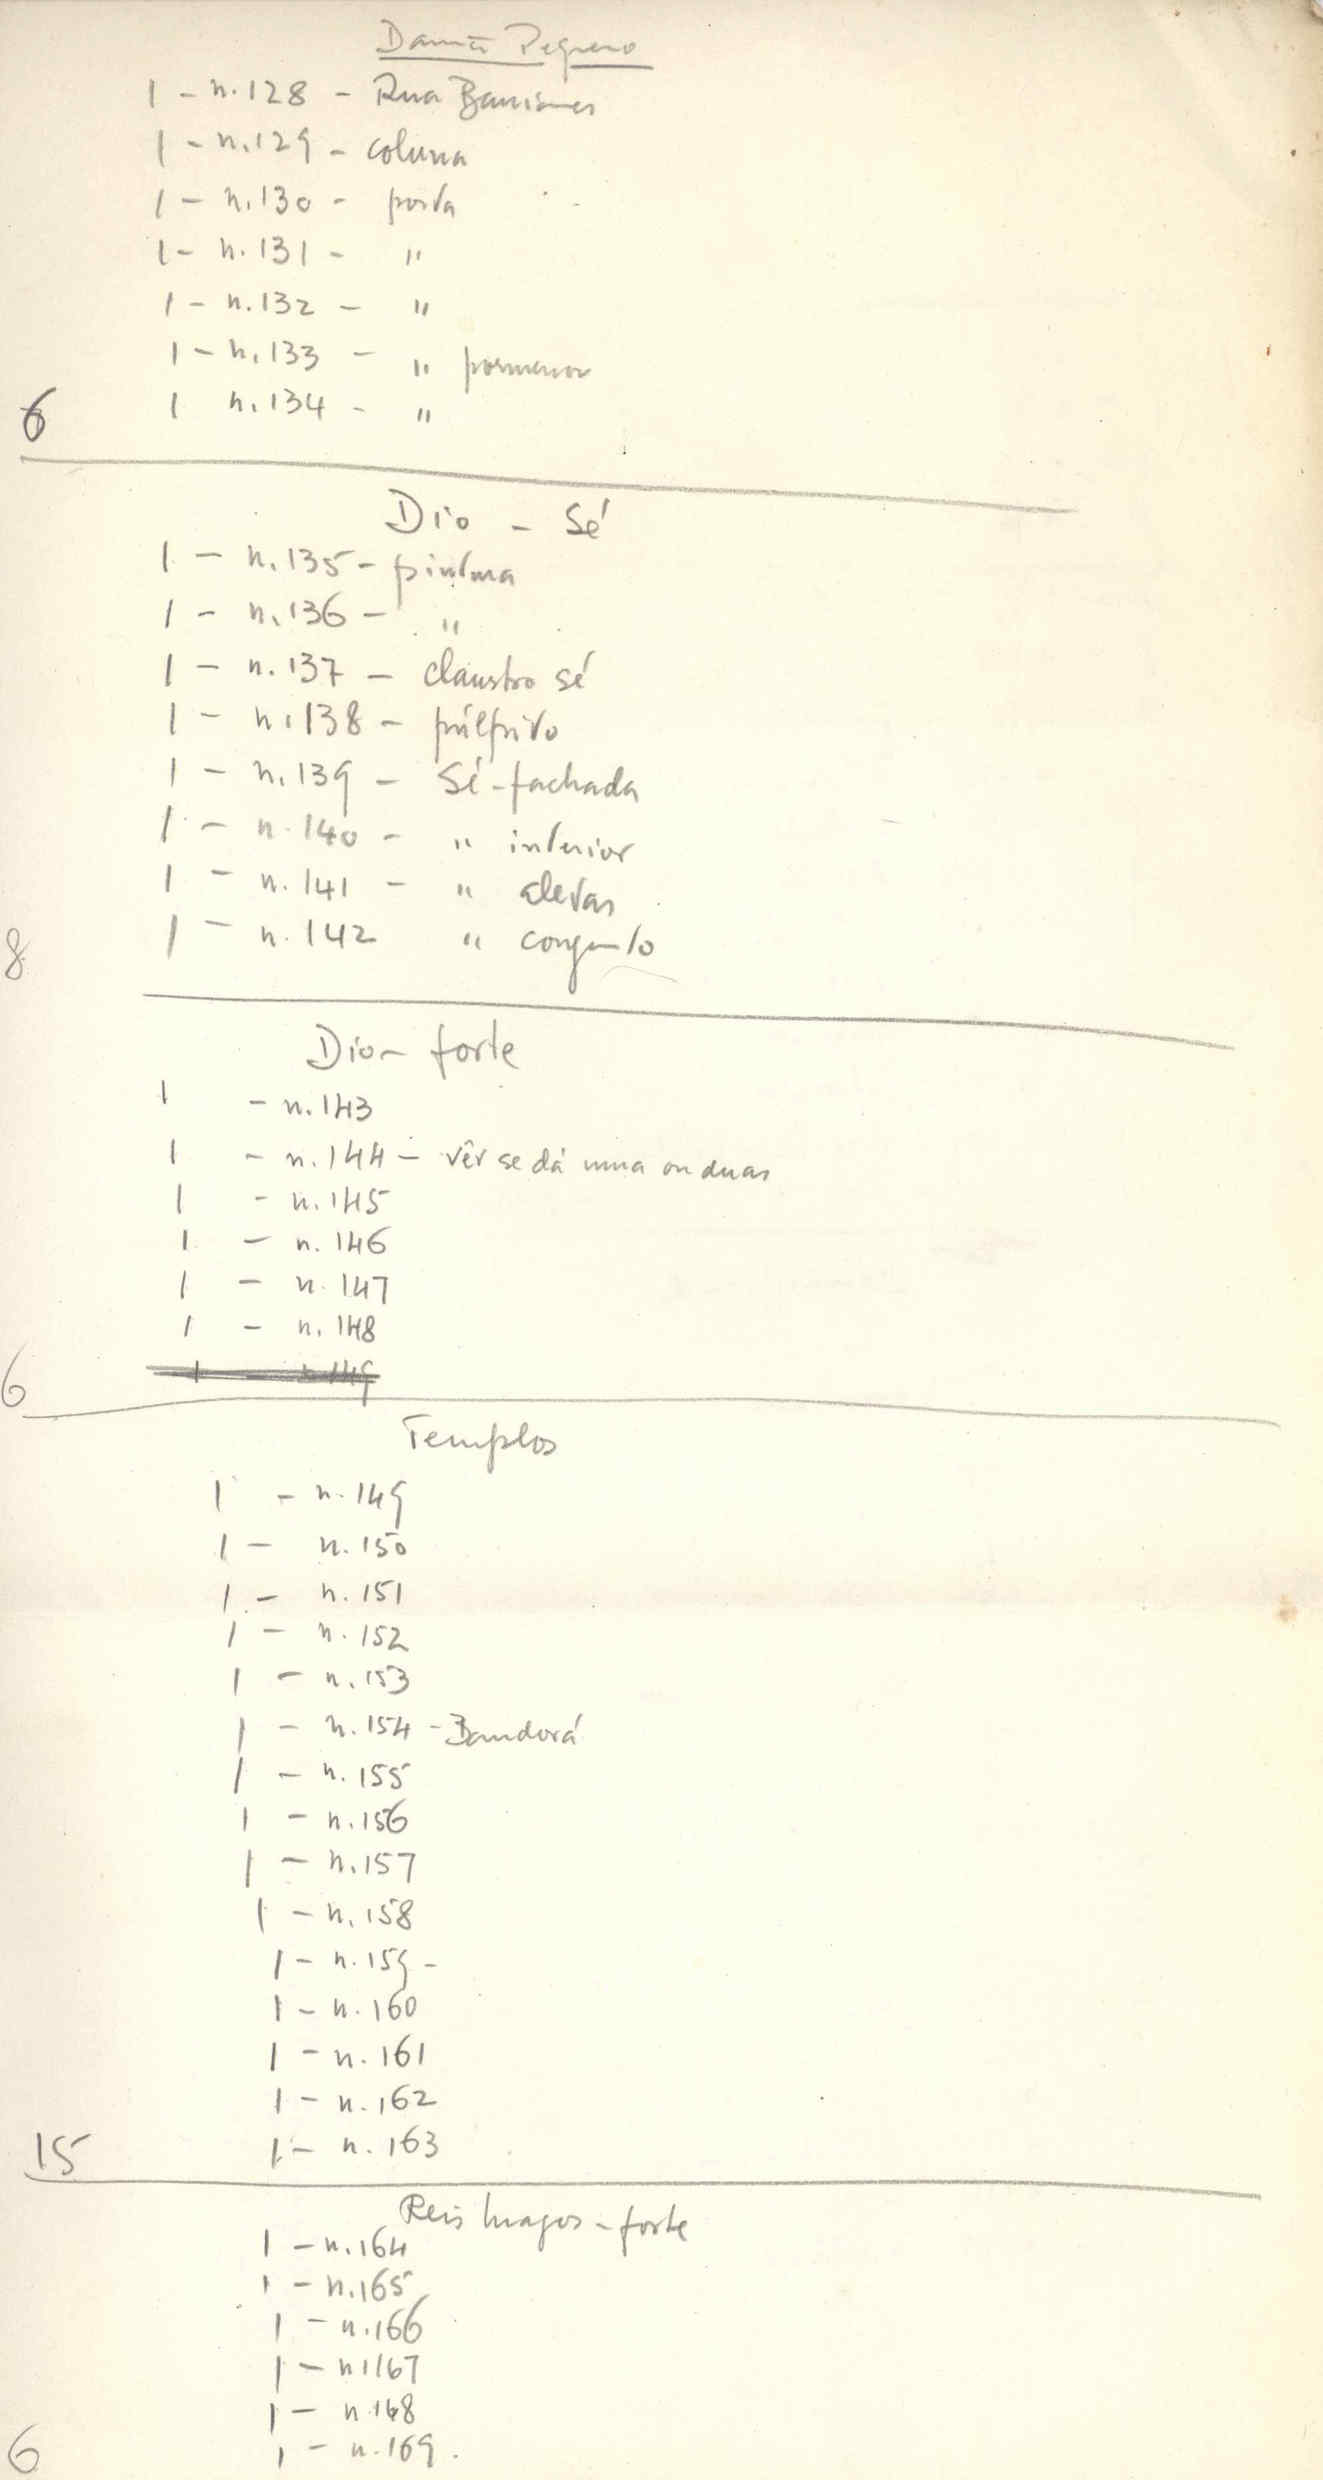 Damão Pequeno
1 - n.128 - Rua Banianes
1 - n.129 - coluna
1 - n.130 - porta
1 - n.131 - "
1 - n.132 - "
1 - n.133 - " pormenor
1 n.134 - "
6
Dio - Sé
1 - n.135 - pintura
1 - n.136 - "
1 - n.137 - claustro sé
1 - n.138 - púlpito
1 - n.139 - Sé - fachada
1 - n.140 - " interior
1 - n.141 - " aletas
1 - n.142 " conjunto
8
Dio - forte
1 - n.143
1 - n.144 - vêr se dá uma ou duas
1 - n.145
1 - n.146
1 - n.147
1 - n.148
1 n.149
6
Templos
1 - n.149
1 - n.150
1 - n.151
1 - n.152
1 - n.153
1 - n.154 - Bandorá
1 - n.155
1 - n.156
1 - n.157
1 - n.158
1 - n.159 -
1 - n.160
1 - n.161
1 - n.162
1 - n.163
15
Reis Magos - forte
1 - n.164
1 - n.165
1 - n.166
1 - n.167
1 - n.168
1 - n.169.
6